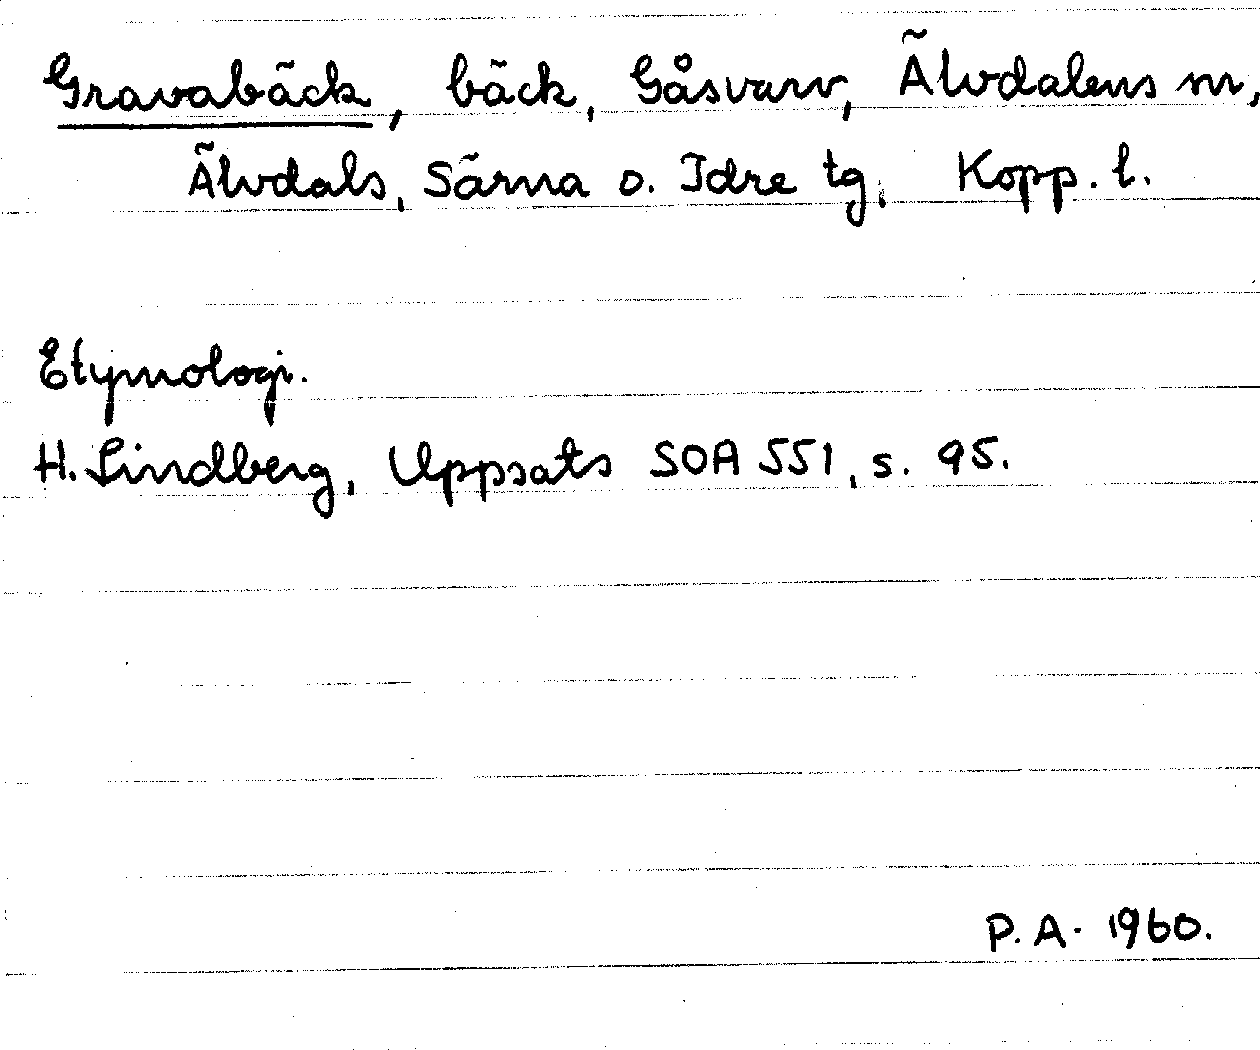 Gravabäck, bäck, Gåsvarv, Älvdalens sn,
Älvdals, Särna o. Idre tg, Kopp. l.
Etymologi.
H. Lindberg, Uppsats SOA 551, s. 95.
P. A. 1960.